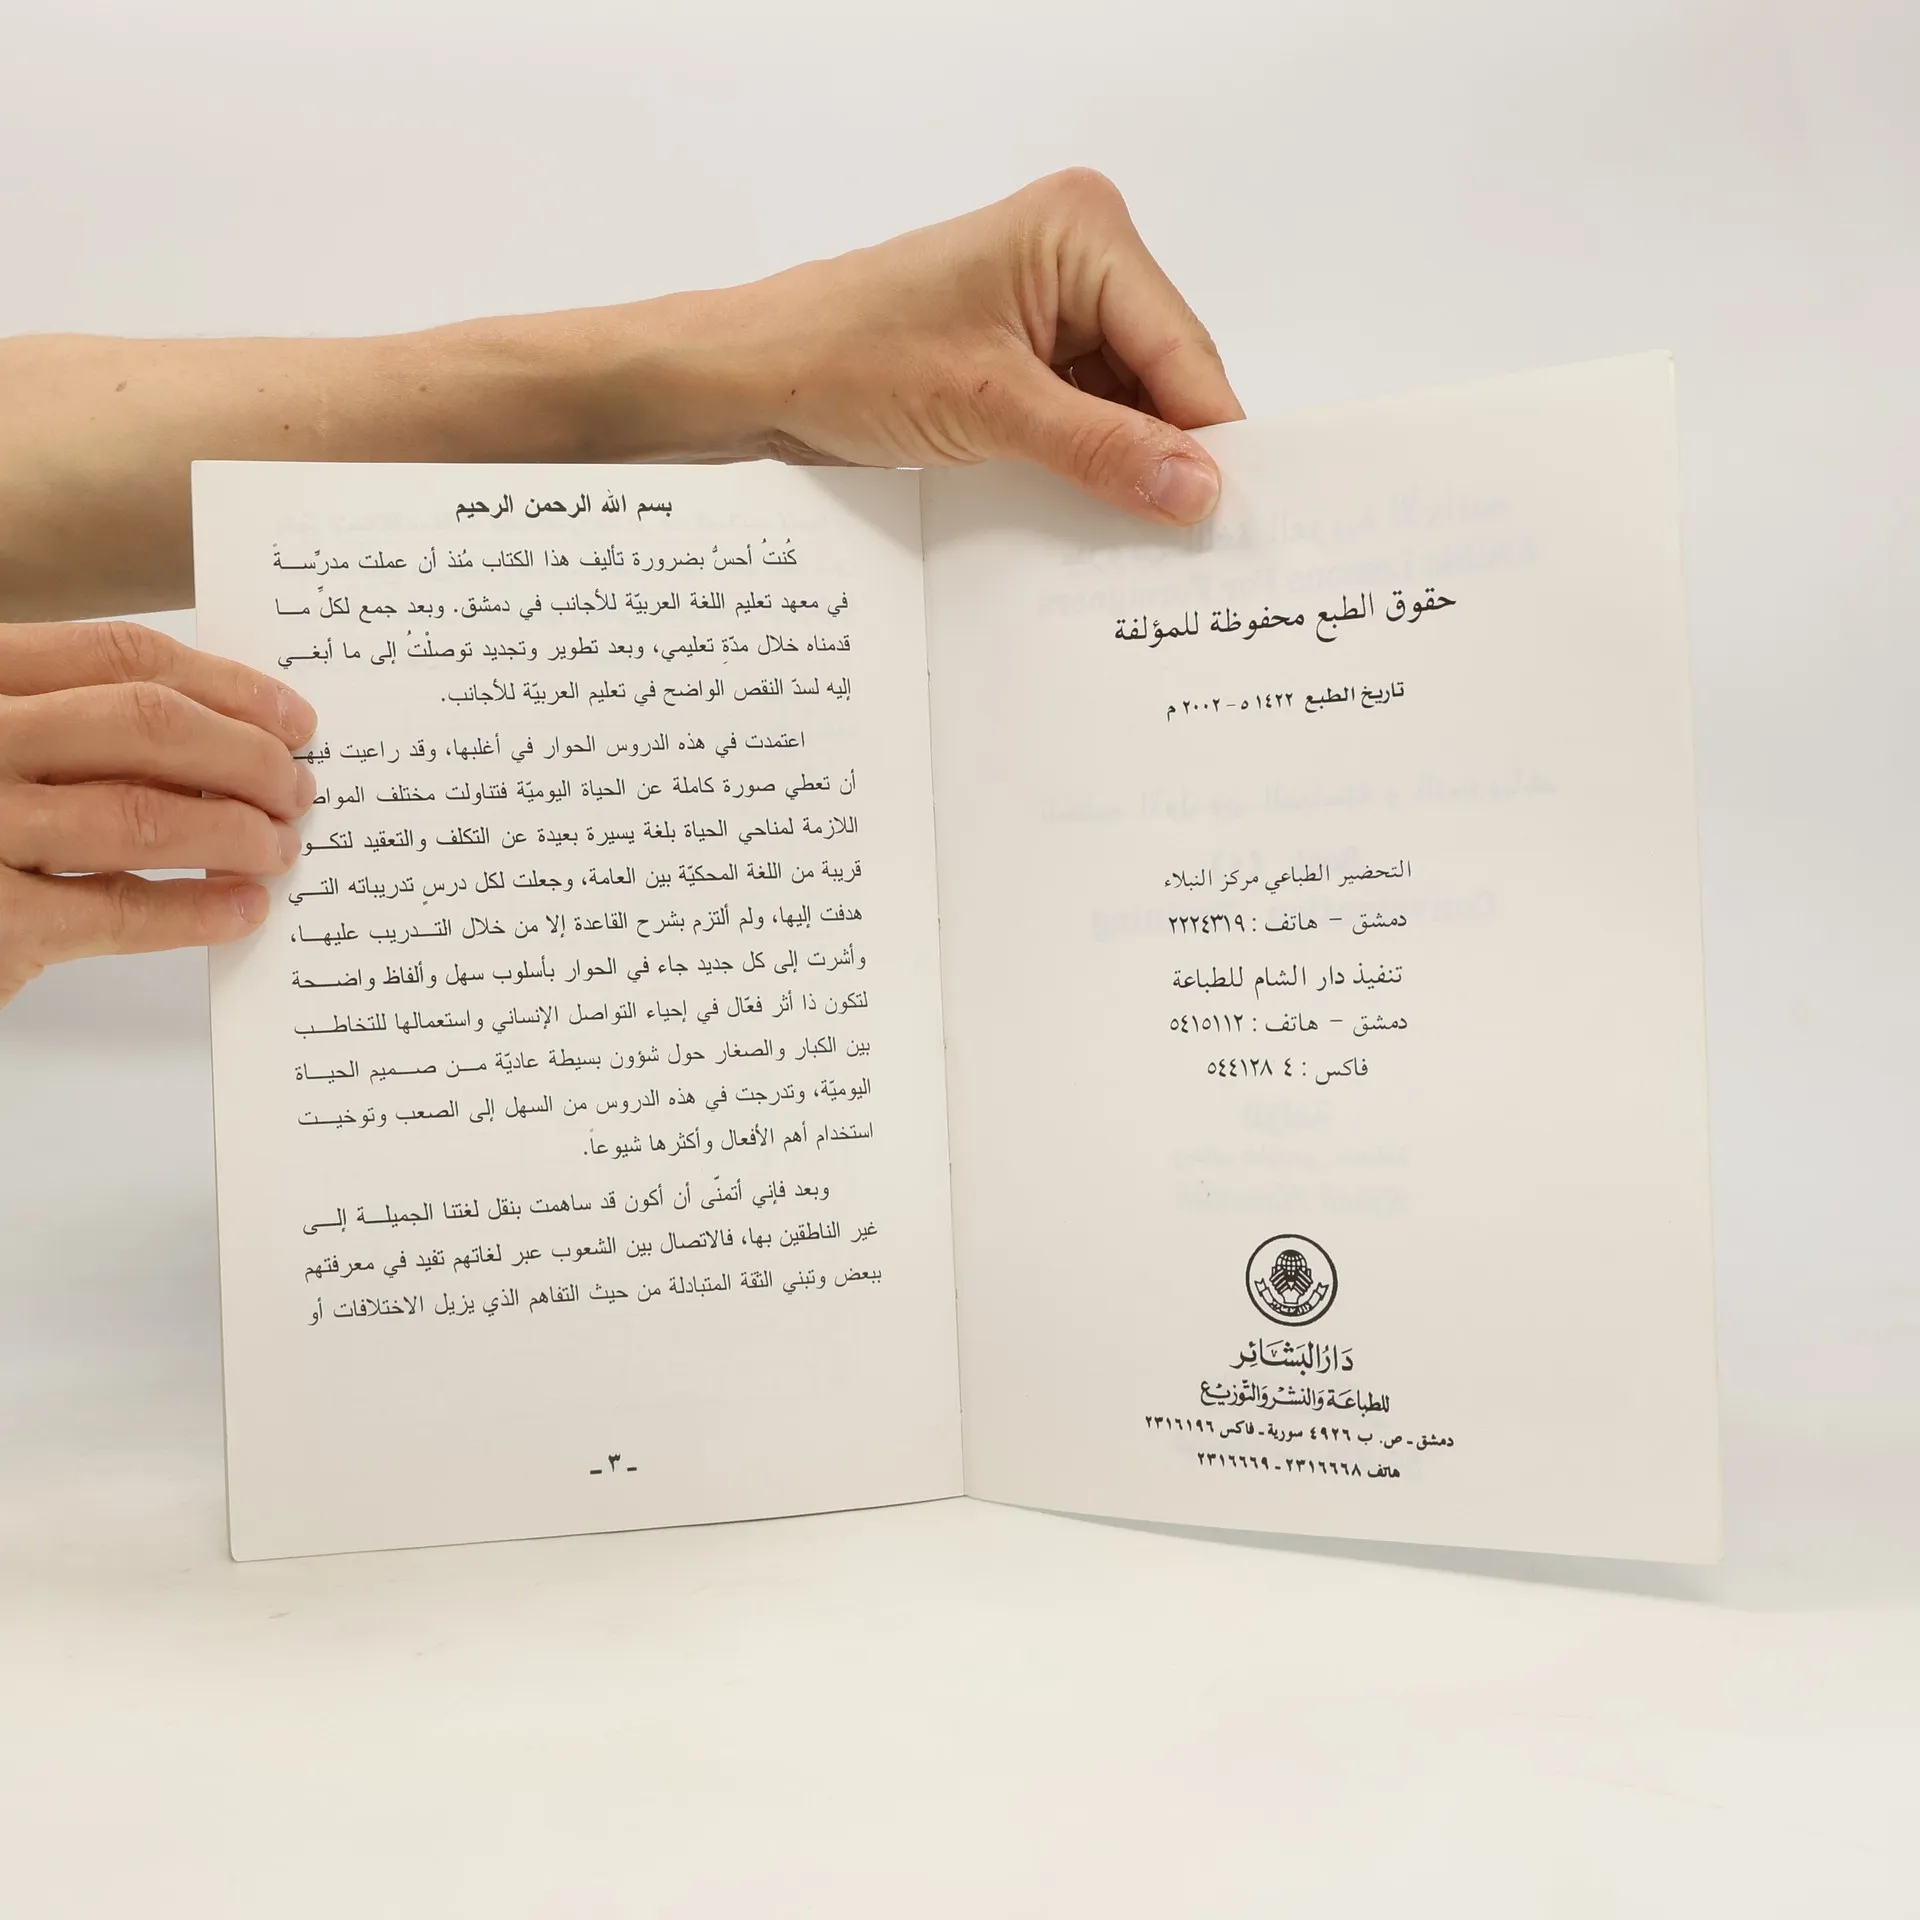 حقوق الطبع محفوظة للمؤلفة
تاريخ الطبع ١٤٢٢ ٥ - ٢٠٠٢ م
التحضير الطباعي مركز النبلاء
دمشق – هاتف : ٢٢٢٤٣١٩
تنفيذ دار الشام للطباعة
دمشق – هاتف : ٥٤١٥١١٢
فاكس : ٤ ٥٤٤١٢٨
دَارُ البَشَائِر
للطباعَة وَالنشْر وَالتَّوزيْع
دمشق ـ ص. ب ٤٩٢٦ سورية ـ فاكس ٢٣١٦١٩٦
هاتف ٢٣١٦٦٦٨ ـ ٢٣١٦٦٦٩
بسم الله الرحمن الرحيم
كُنتُ أحسُّ بضرورة تأليف هذا الكتاب مُنذ أن عملت مدرِّســةً
في معهد تعليم اللغة العربيّة للأجانب في دمشق. وبعد جمع لكلِّ مــا
قدمناه خلال مدّةِ تعليمي، وبعد تطوير وتجديد توصلْتُ إلى ما أبغــي
إليه لسدّ النقص الواضح في تعليم العربيّة للأجانب.
اعتمدت في هذه الدروس الحوار في أغلبها، وقد راعيت
أن تعطي صورة كاملة عن الحياة اليوميّة فتناولت مختلف
اللازمة لمناحي الحياة بلغة يسيرة بعيدة عن التكلف والتعقيد
قريبة من اللغة المحكيّة بين العامة، وجعلت لكل درسٍ تدريباته التــي
هدفت إليها، ولم ألتزم بشرح القاعدة إلا من خلال التــدريب عليهــا،
وأشرت إلى كل جديد جاء في الحوار بأسلوب سهل وألفاظ واضــحة
لتكون ذا أثر فعّال في إحياء التواصل الإنساني واستعمالها للتخاطــب
بين الكبار والصغار حول شؤون بسيطة عاديّة مــن صــميم الحيــاة
اليوميّة، وتدرجت في هذه الدروس من السهل إلى الصعب وتوخيــت
استخدام أهم الأفعال وأكثرها شيوعاً.
وبعد فإني أتمنّى أن أكون قد ساهمت بنقل لغتنا الجميلــة إلــى
غير الناطقين بها، فالاتصال بين الشعوب عبر لغاتهم تفيد في معرفتهم
ببعض وتبني الثقة المتبادلة من حيث التفاهم الذي يزيل الاختلافات أو
ـ ٣ ـ